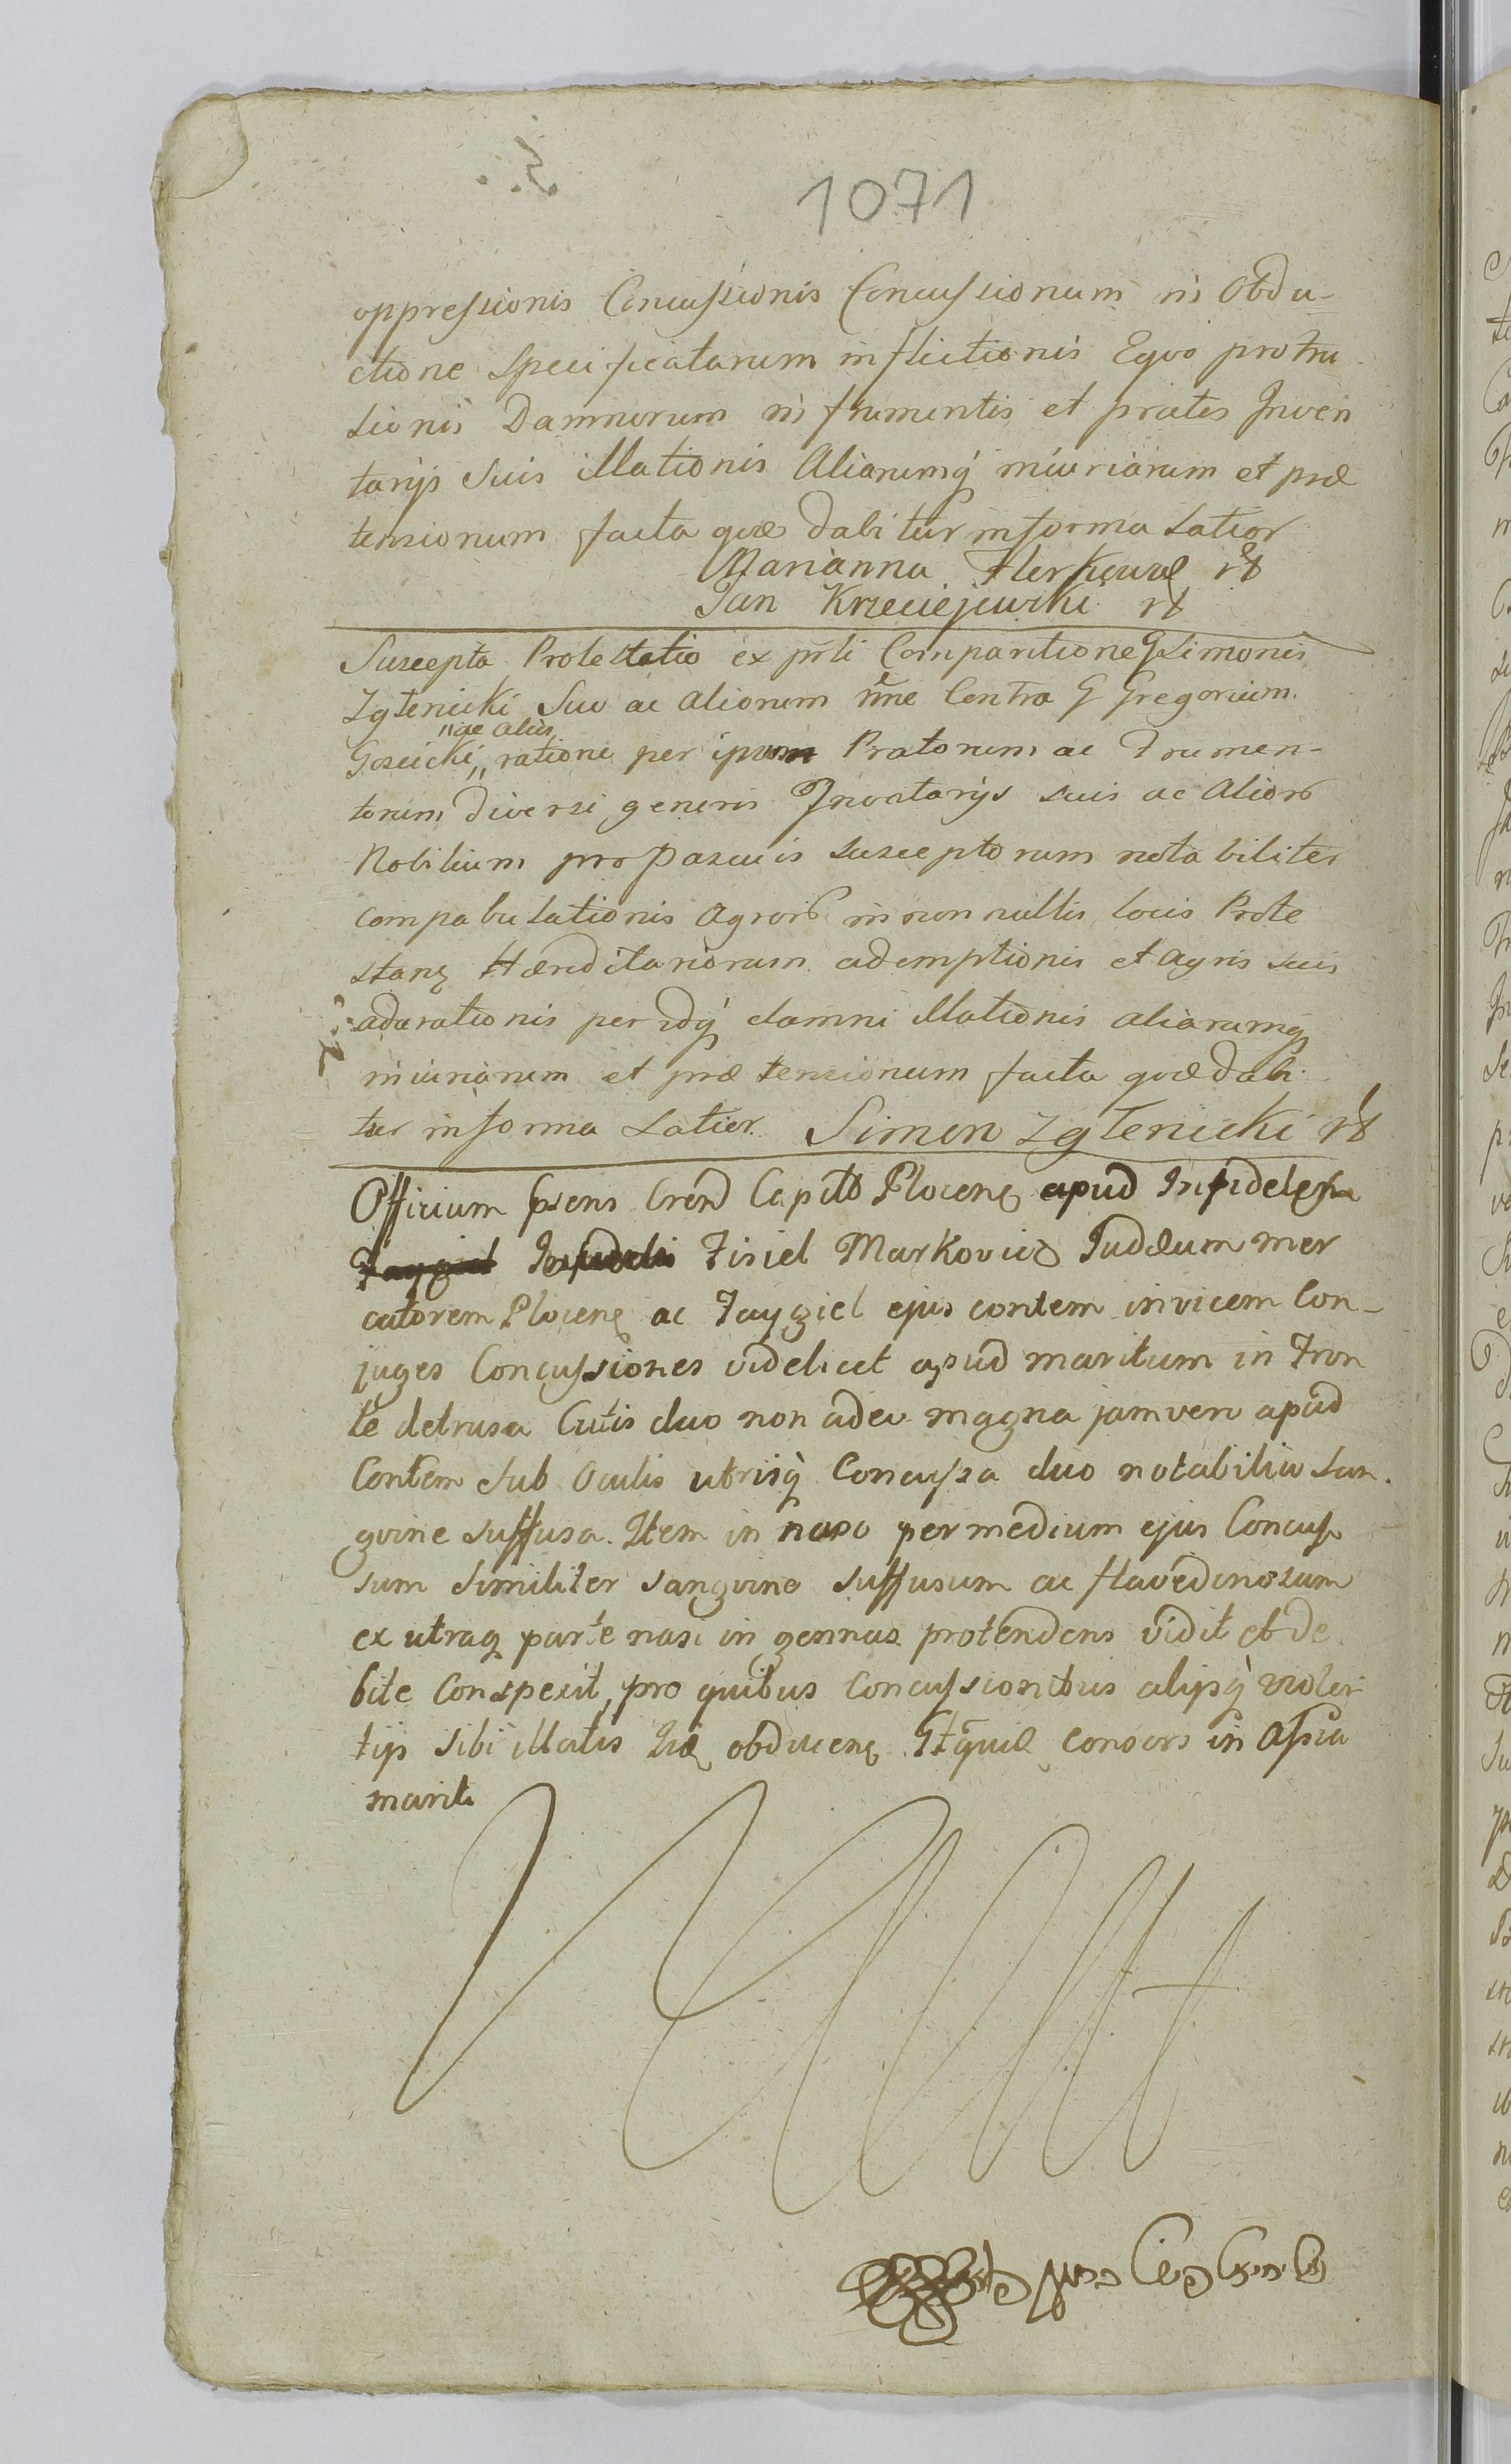 1071
oppressionis Concussionis Concussionum in Obdu-
ctione Specificatarum inflictionis Equo protru
sionis Damnorum in frumentis et pratis Inven
tarijs suis illationis Aliarumq iniuriarum et præ
tensionum facta quæ dabitur in forma latior
Marianna
Jan Krzeciejewski
Suscepta Protestatio ex prli Comparitione G Simonis
Zglenicki Suo ac aliorum nne Contra G Gregorium
"ac alios
Goscicki" ratione per ipsum Pratorum ac Frumen-
torum diversi generis Inventarijs suis ac Alior
Nobilium pro Pascuis susceptorum notabiliter
compabulationis agror in non nullis locis Prote
stan Hæreditariorum ademptionis et agris suis
adarationis per idq damni illationis aliarumq
iniuriarum et præ tensionum facta quæ dabi
tur in forma latior Simon Zglenicki
Officium Psens Cren Capitl Plocen apud Infidelem
Fisiel Markovic Judæum mer
catorem Plocen ac Faygiel ejus contem invicem Con-
juges Concussiones videlicet apud maritum in Fron
te detrusa Cutis duo non adeo magna jam vero apud
Contem sub Oculis utrisq Concussa duo notabilia San
gvine suffusa. Item in naso per medium ejus Concus
sum similiter sangvine suffusum ac flavedinosum
ex utraq parte nasi in gennas protendens vidit et de
bite Conspexit, pro quibus Concussionibus alijsq violen
tijs sibi illatis obducen consors in Assia
mariti